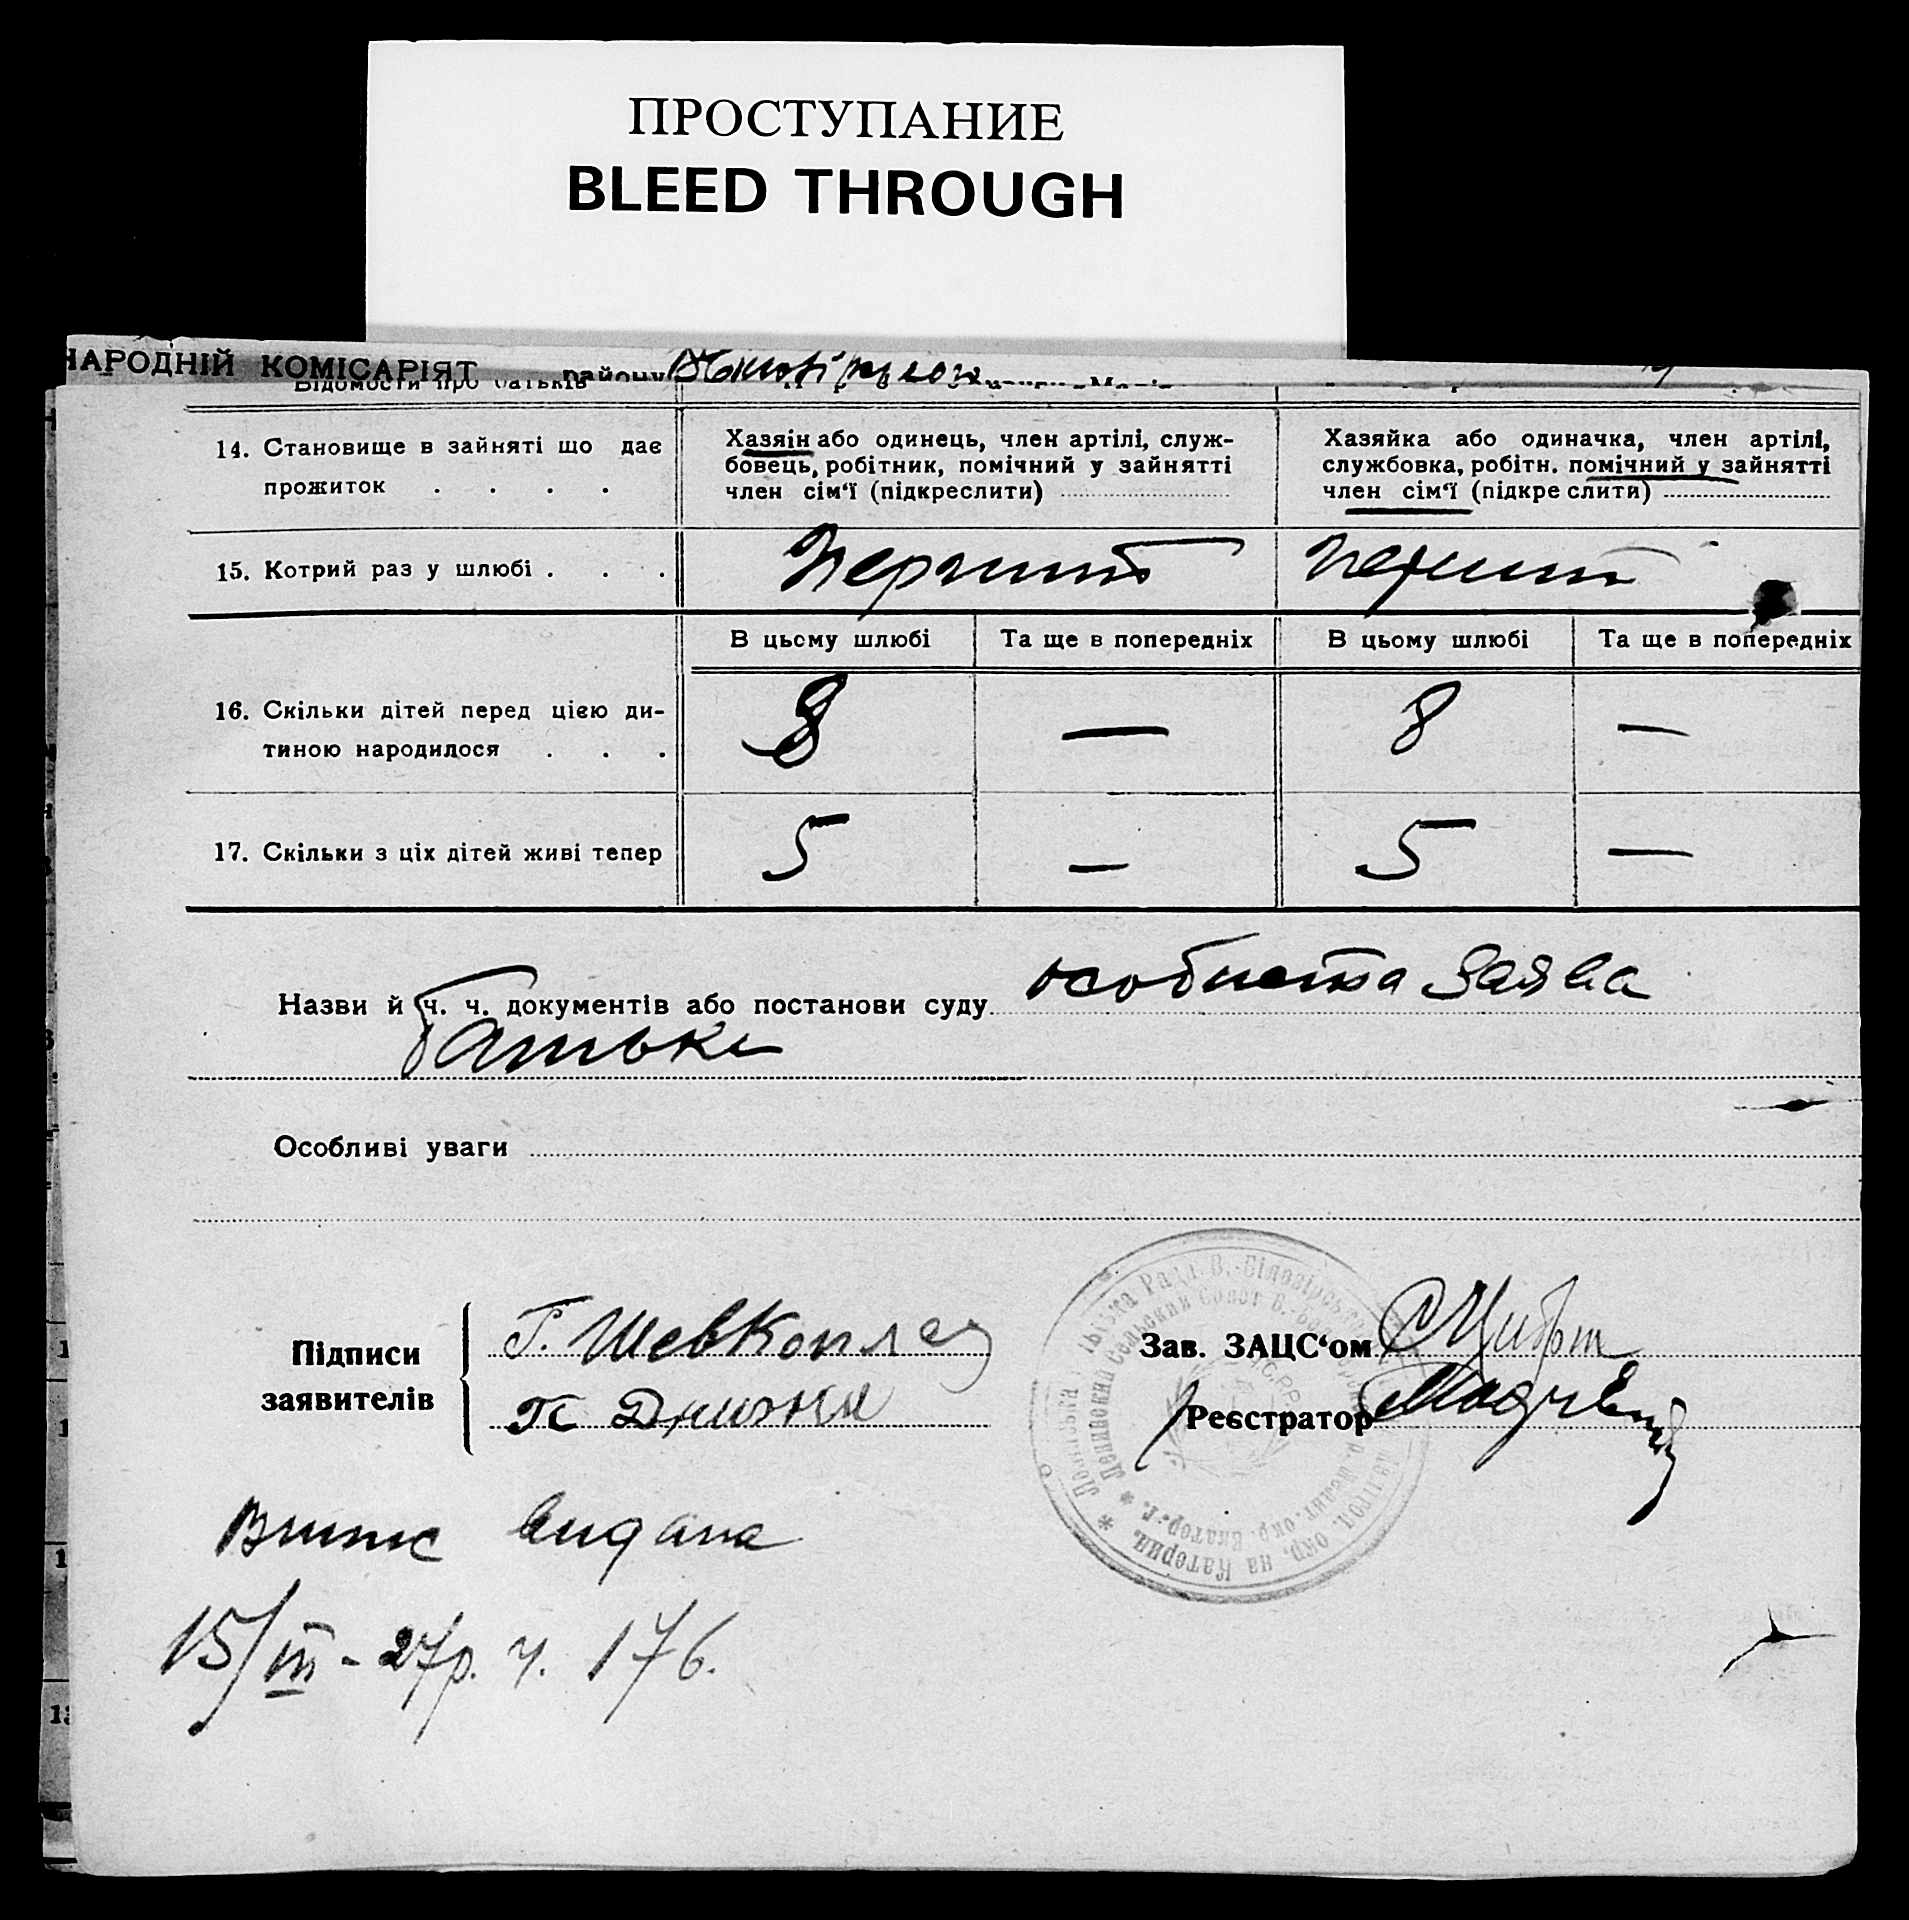 ПРОСТУПАНИЕ
BLEED THROUGH
НАРОДНІЙ КОМІСАРІЯТ
району
Відомости про батьків
14. Становище в зайняті що дає
прожиток . . . .
Хазяін або одинець, член артілі, служ-
бовець, робітник, помічний у зайнятті
член сім‘ї (підкреслити)
Хазяйка або одиначка, член артілі,
службовка, робітн. помічний у зайнятті
член сім‘ї (підкреслити)
15. Котрий раз у шлюбі . . .
Перший
Перший
В цьому шлюбі
Та ще в попередніх
В цьому шлюбі
Та ще в попередніх
16. Скільки дітей перед цією ди-
тиною народилося . . .
8 — 8 —
17. Скільки з ціх дітей живі тепер
5 — 5 —
Назви й ч. ч. документів або постанови суду особиста заява
батька
Особливі уваги
Підписи
заявителів
Г. Шевкопляс
Зав. ЗАЦС‘ом
Реєстратор
видана
15/III - 27 р. ч. 176.